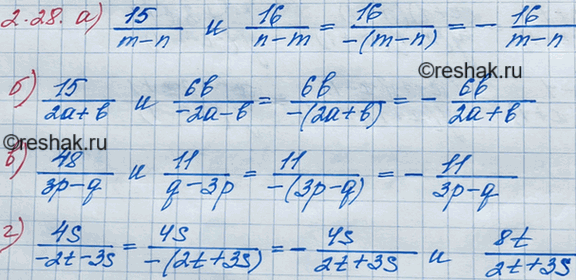 2.28. а) 15/(m-n) и 16/(n-m) = 16/(-(m-n)) = - 16/(m-n)
©reshak.ru
б) 15/(2a+b) и 6b/(-2a-b) = 6b/(-(2a+b)) = - 6b/(2a+b)
©reshak.ru
в) 48/(3p-q) и 11/(q-3p) = 11/(-(3p-q)) = - 11/(3p-q)
г) 4s/(-2t-3s) = 4s/(-(2t+3s)) = - 4s/(2t+3s) и 8t/(2t+3s)
©reshak.ru